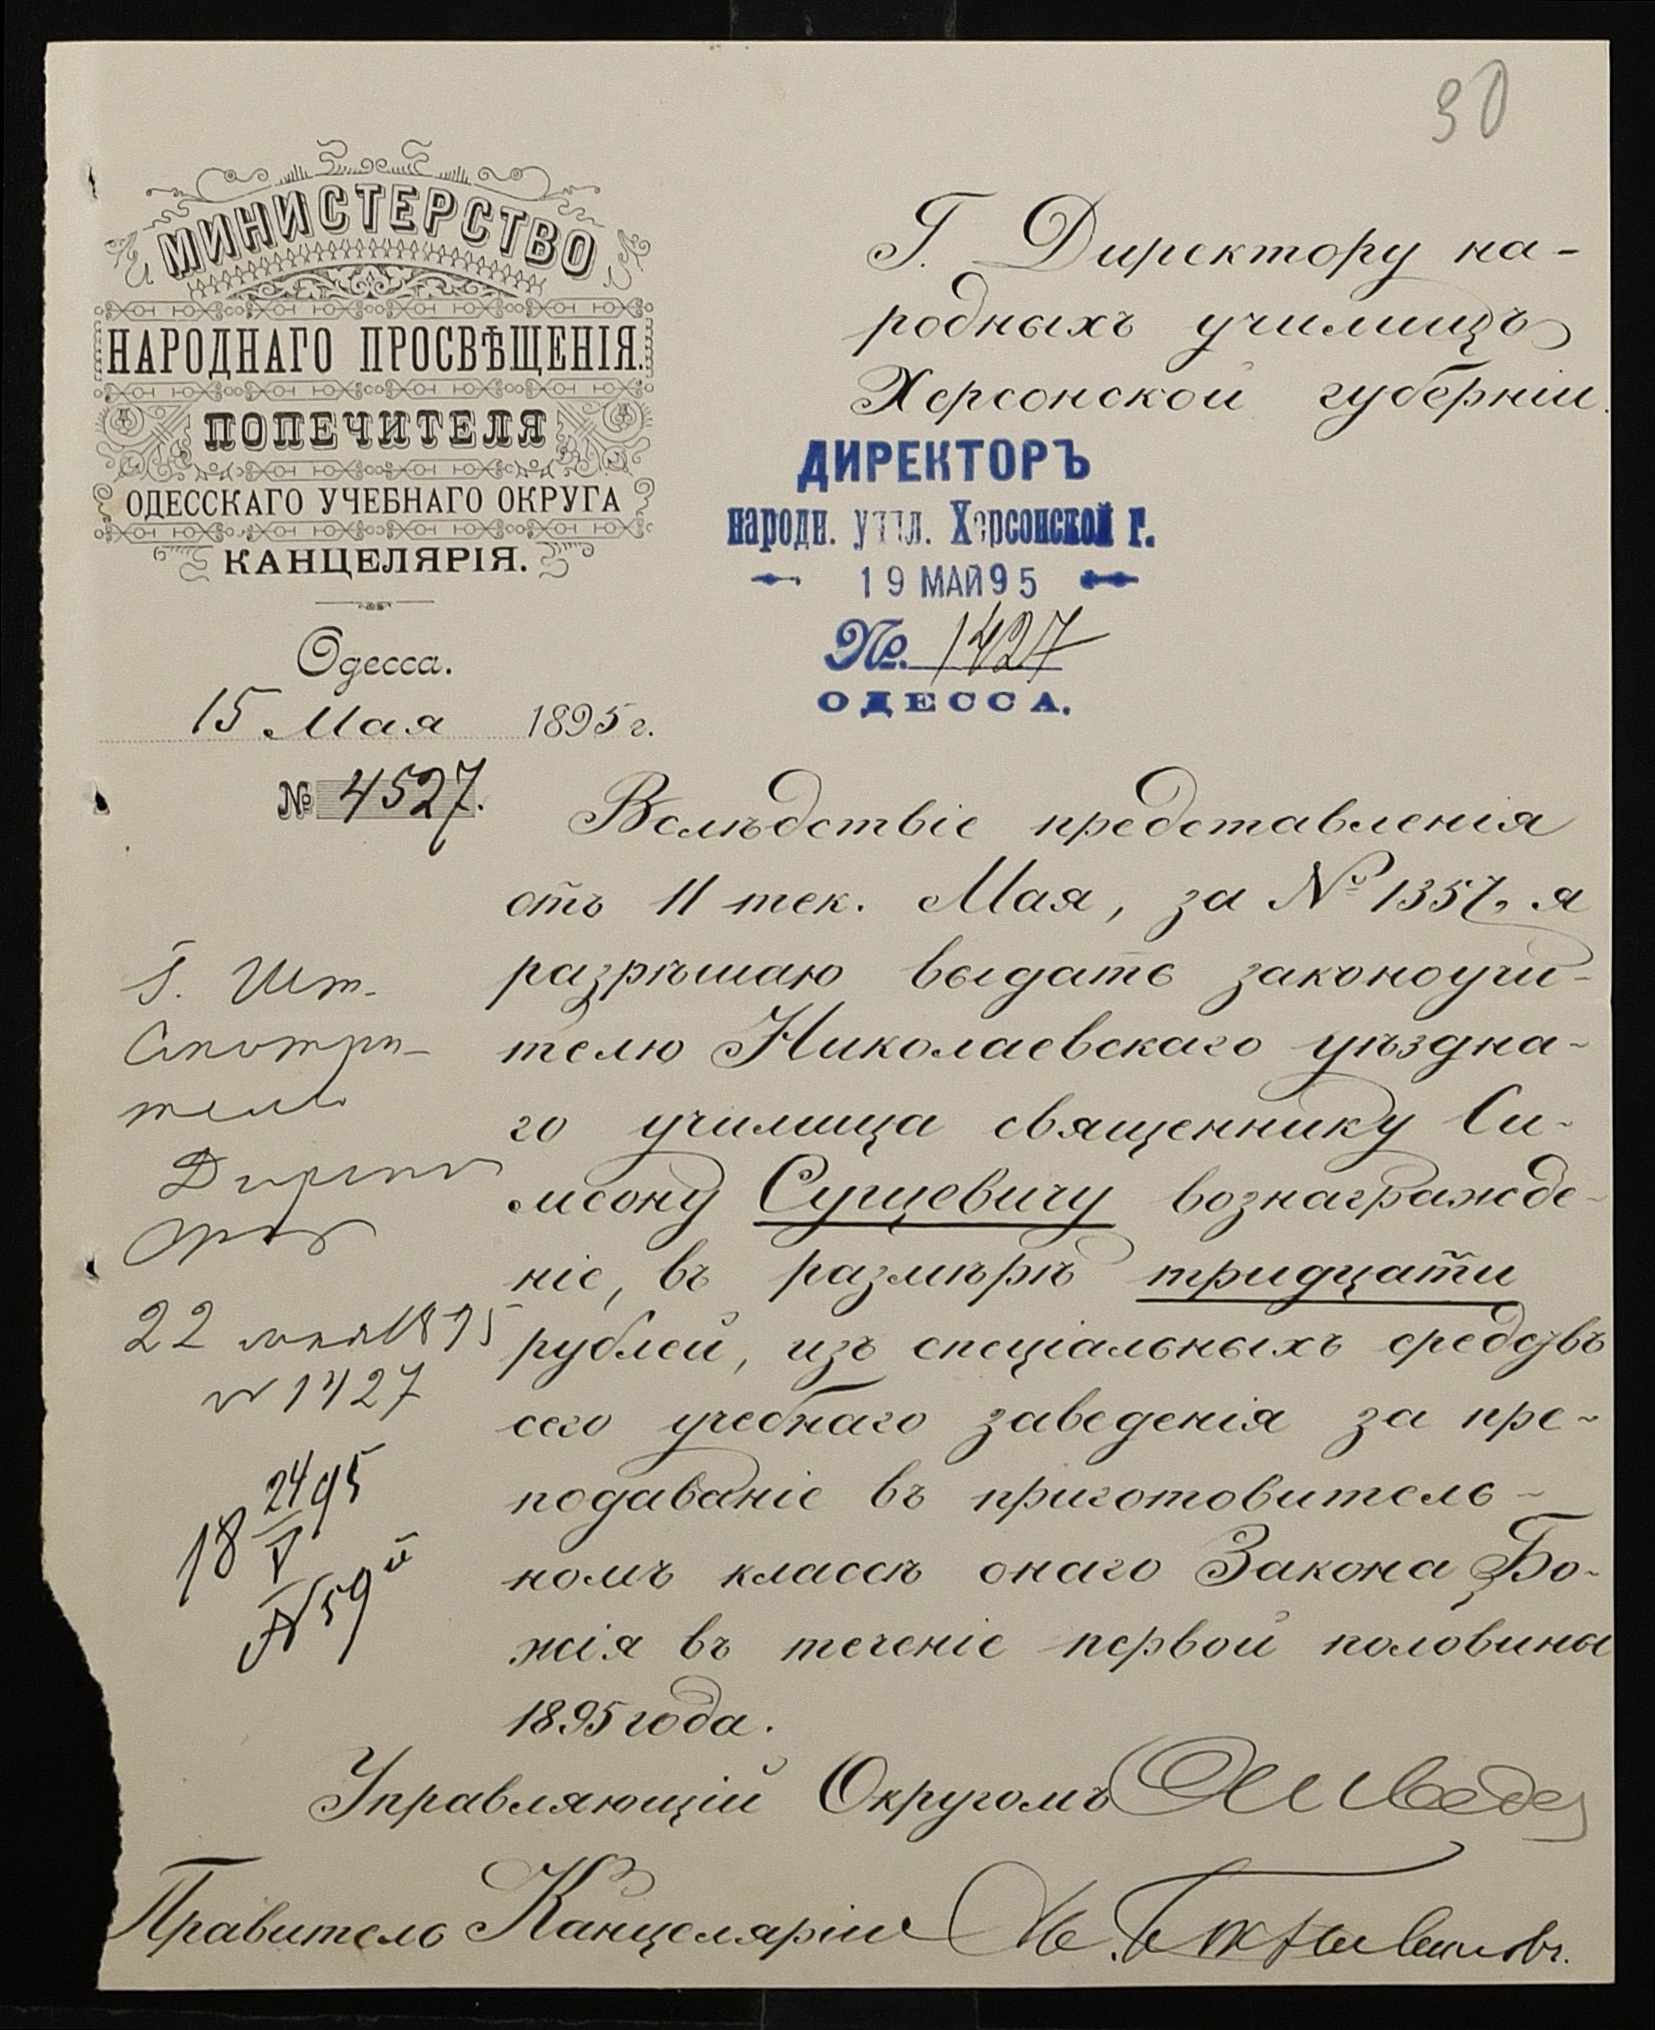 30
МИНИСТЕРСТВО
НАРОДНАГО ПРОСВѢЩЕНІЯ.
ПОПЕЧИТЕЛЯ
ОДЕССКАГО УЧЕБНАГО ОКРУГА
КАНЦЕЛЯРІЯ.
Одесса.
15 Мая 1895 г.
№ 4527.
Г. Директору на-
родныхъ училищъ
Херсонской губерніи.
ДИРЕКТОРЪ
народн. учил. Херсонской г.
19 МАЙ 95
№. 1427
ОДЕССА.
Вслѣдствіе представленія
отъ 11 тек. Мая, за № 1357, я
разрѣшаю выдать законоучи-
телю Николаевскаго уѣздна-
го училища священнику Си-
меону Сущевичу вознагражде-
ніе, въ размѣрѣ тридцати
рублей, изъ спеціальныхъ средствъ
сего учебнаго заведенія за пре-
подаваніе въ приготовитель-
номъ классѣ онаго Закона Бо-
жія въ теченіе первой половины
1895 года.
Г. Шт.
Смотри-
телю
Дирек
торъ
22 мая 1895
№ 1427
18 24/V 95
№ 59й
Управляющій Округомъ
Правитель Канцеляріи